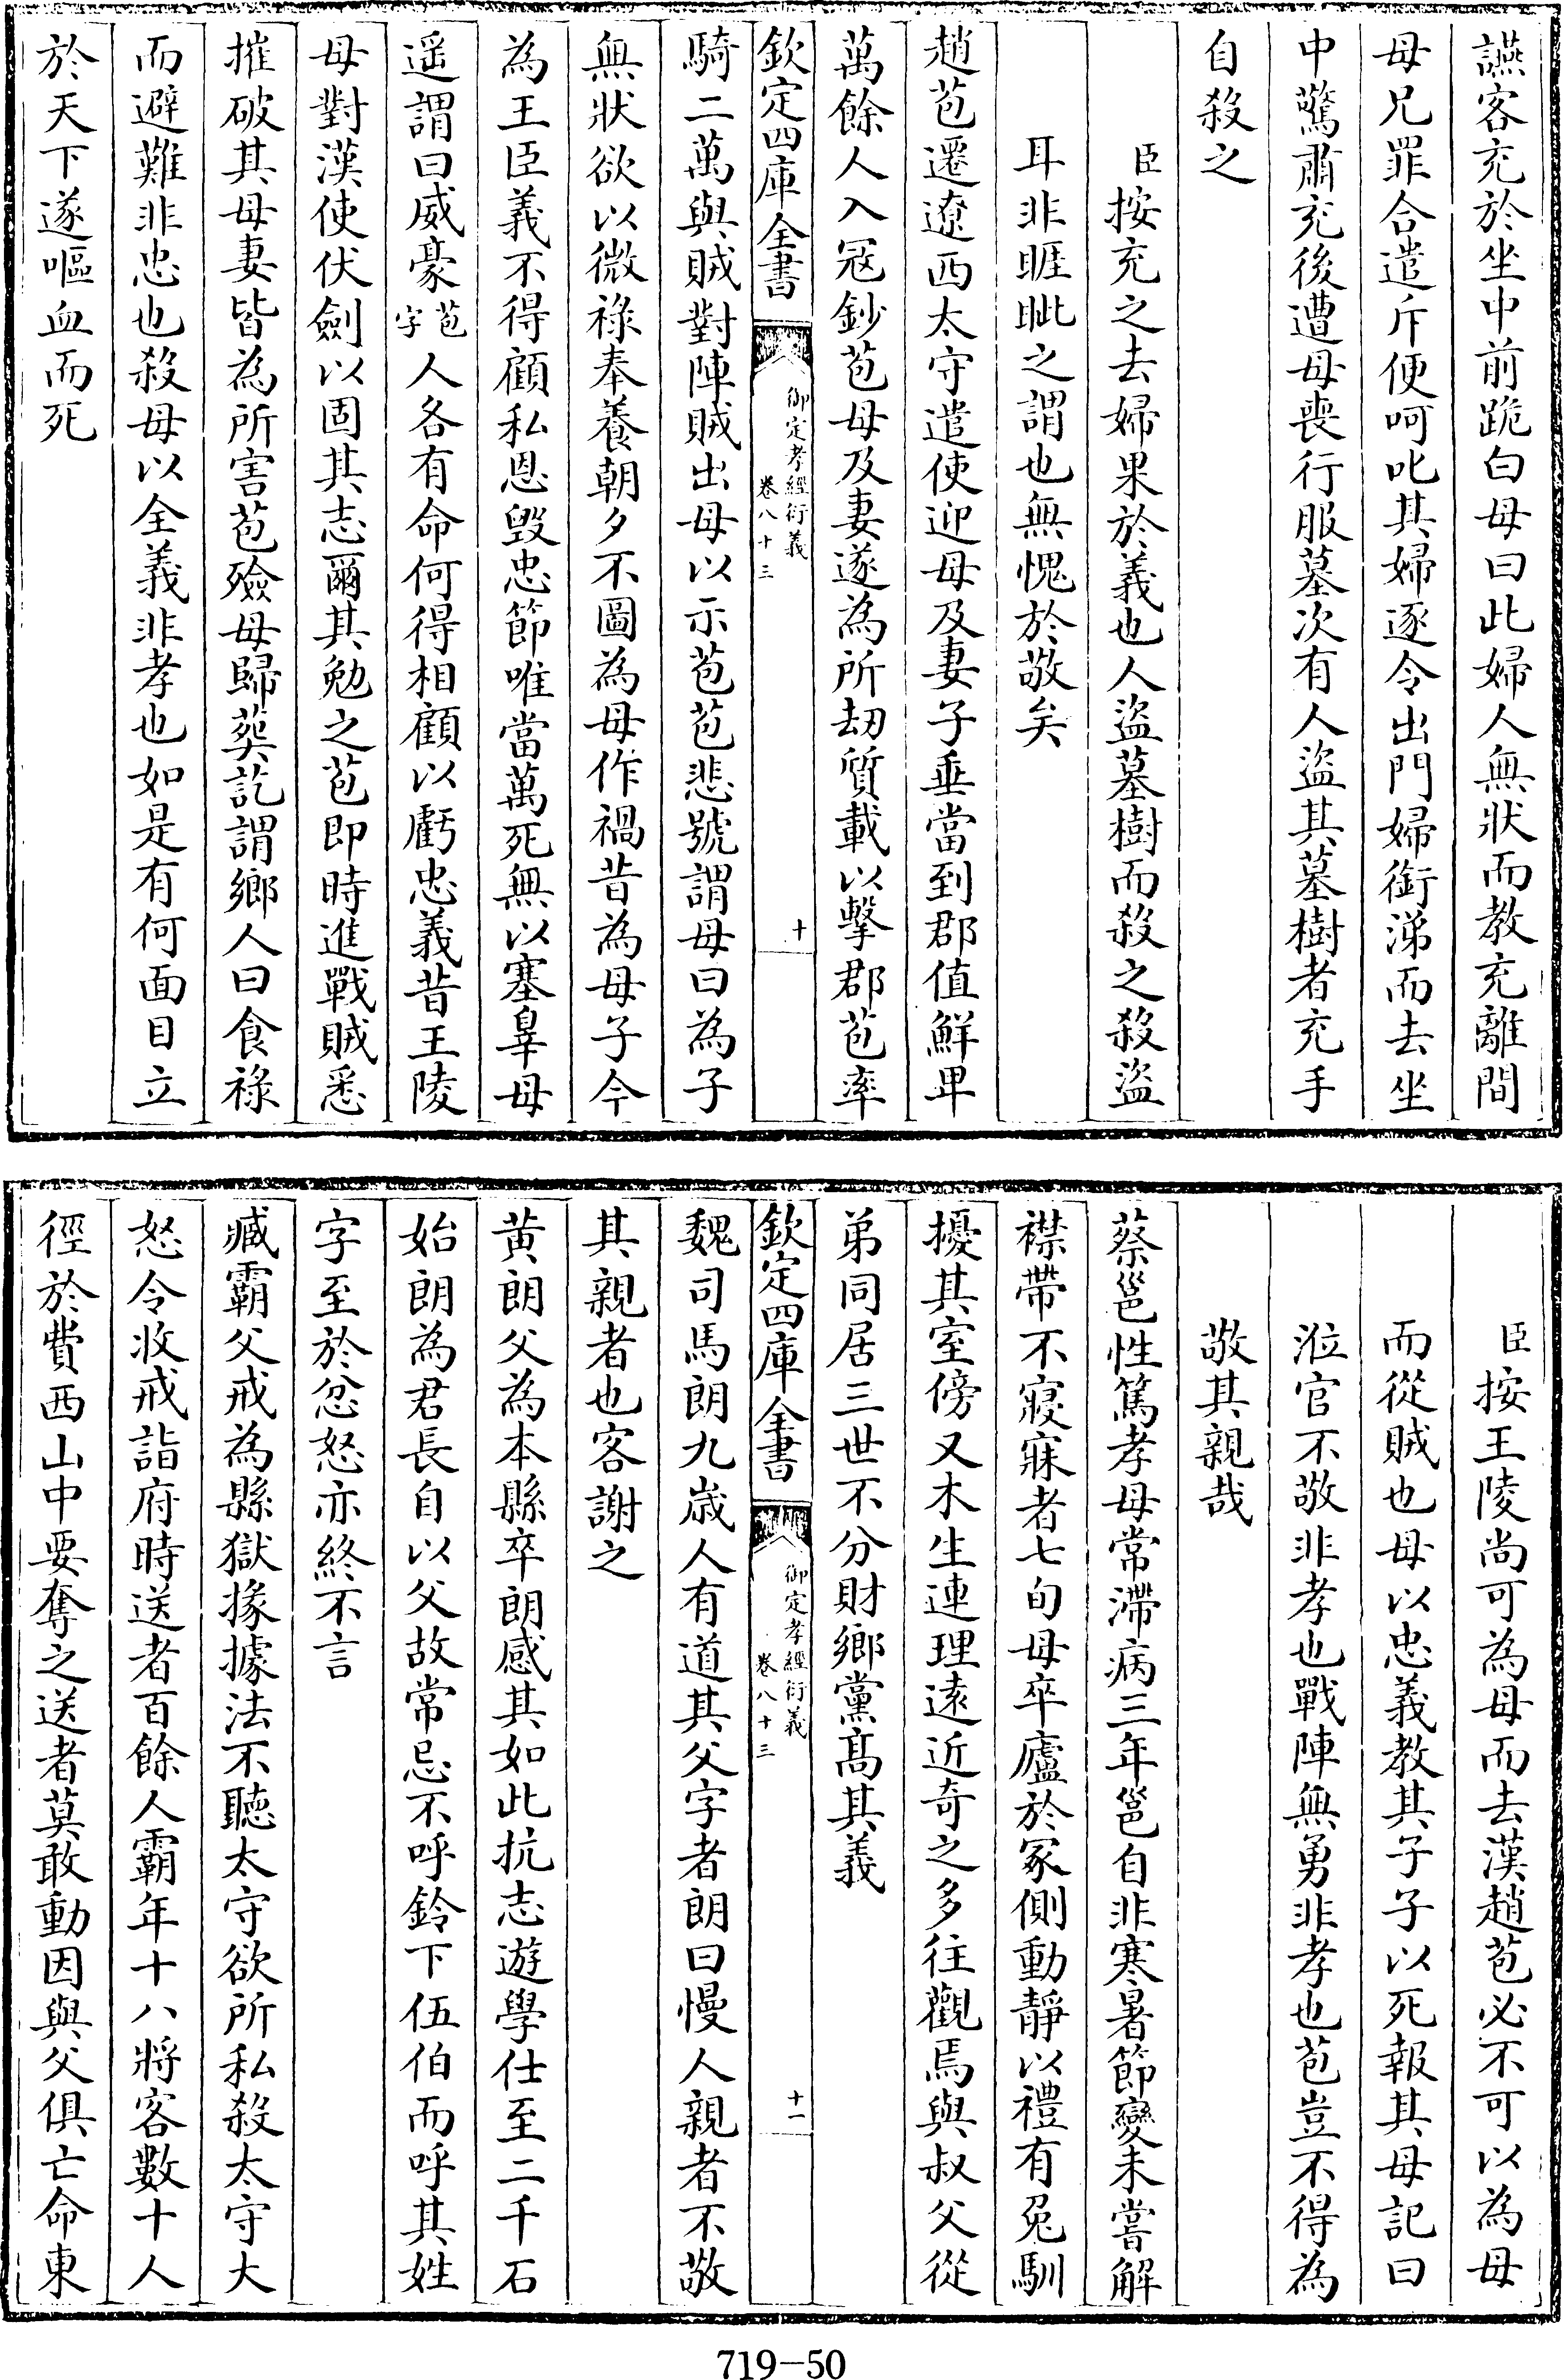 讌客充於坐中前跪白母曰此婦人無狀而教充離間
母兄罪合遣斥便呵叱其婦逐令出門婦銜涕而去坐
中驚肅充後遭母喪行服墓次有人盜其墓樹者充手
自殺之
臣按充之去婦果於義也人盜墓樹而殺之殺盜
耳非睚眦之謂也無愧於敬矣
趙苞遷遼西太守遣使迎母及妻子垂當到郡值鮮卑
萬餘人入冦鈔苞母及妻遂為所劫質載以擊郡苞率
欽定四庫全書
御定孝經衍義
卷八十三
十
騎二萬與賊對陣賊出母以示苞苞悲號謂母曰為子
無狀欲以微祿奉養朝夕不圖為母作禍昔為母子今
為王臣義不得顧私恩毀忠節唯當萬死無以塞辠母
遥謂曰威豪苞字人各有命何得相顧以虧忠義昔王陵
母對漢使伏劍以固其志爾其勉之苞即時進戰賊悉
摧破其母妻皆為所害苞殮母歸葬訖謂鄉人曰食祿
而避難非忠也殺母以全義非孝也如是有何面目立
於天下遂嘔血而死
臣按王陵尚可為母而去漢趙苞必不可以為母
而從賊也母以忠義教其子子以死報其母記曰
涖官不敬非孝也戰陣無勇非孝也苞豈不得為
敬其親哉
蔡邕性篤孝母常滯病三年邕自非寒暑節變未嘗解
襟帶不寢寐者七旬母卒廬於冢側動靜以禮有兔馴
擾其室傍又木生連理遠近奇之多往觀焉與叔父從
弟同居三世不分財鄉黨髙其義
欽定四庫全書
御定孝經衍義
卷八十三
十一
魏司馬朗九歲人有道其父字者朗曰慢人親者不敬
其親者也客謝之
黄朗父為本縣卒朗感其如此抗志遊學仕至二千石
始朗為君長自以父故常忌不呼鈴下伍伯而呼其姓
字至於忿怒亦終不言
臧霸父戒為縣獄掾據法不聽太守欲所私殺太守大
怒令收戒詣府時送者百餘人霸年十八將客數十人
徑於費西山中要奪之送者莫敢動因與父俱亡命東
719-50